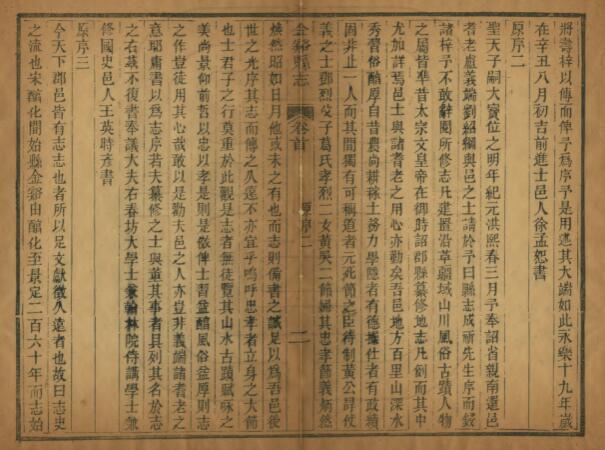 將壽梓以傳而俾予為序予是用述其大端如此永樂十九年歲
在辛丑八月初吉前進士邑人徐孟恕書
原序二
聖天子嗣大寶位之明年紀元洪熙春三月予奉詔省親南還邑
者老盧義端劉紹綱與邑之士請於予曰縣志成祈先生序而鋟
諸梓予不敢辭閱所修志凡建置沿革疆域山川風俗古蹟人物
之屬皆準昔太宗文皇帝在御時詔郡縣纂修地志凡例而其中
尤加詳焉邑士與諸耆老之用心亦勤矣吾邑地方百里山深水
秀習俗醕厚自昔農尚耕稼士務力學隱者有德擢仕者有政績
固非止一人而其間獨有可稱道者元死節之臣待制黃公諱仗
義之士鄧烈女子葛氏孝烈二女黃吳二節婦其忠孝節義炳然
金谿縣志
卷首
原序
二
煥然昭如日月他或未之有也而志則備書之誠足以為吾邑後
世之光序其志而傳之久遠不亦宜乎嗚呼忠孝者立身之大節
也士君子之行莫重於此觀是志者無徒覽其山水古蹟賦咏之
美尚景仰前哲以忠以孝是則是傚俾士習益醕風俗益厚則志
之作豈徒用其心哉敢以是勸夫邑之人亦豈非義端諸耆老之
意耶庸書以為志序若夫纂修之士與董其事者具列其名於志
之右茲不復書奉議大夫右春坊大學士兼翰林院侍講學士兼
修國史邑人王英時彥書
原序三
今天下郡邑皆有志志也者所以足文獻徵久遠者也故曰志史
之流也宋醕化間始縣金谿由醕化至景定二百六十年而志始